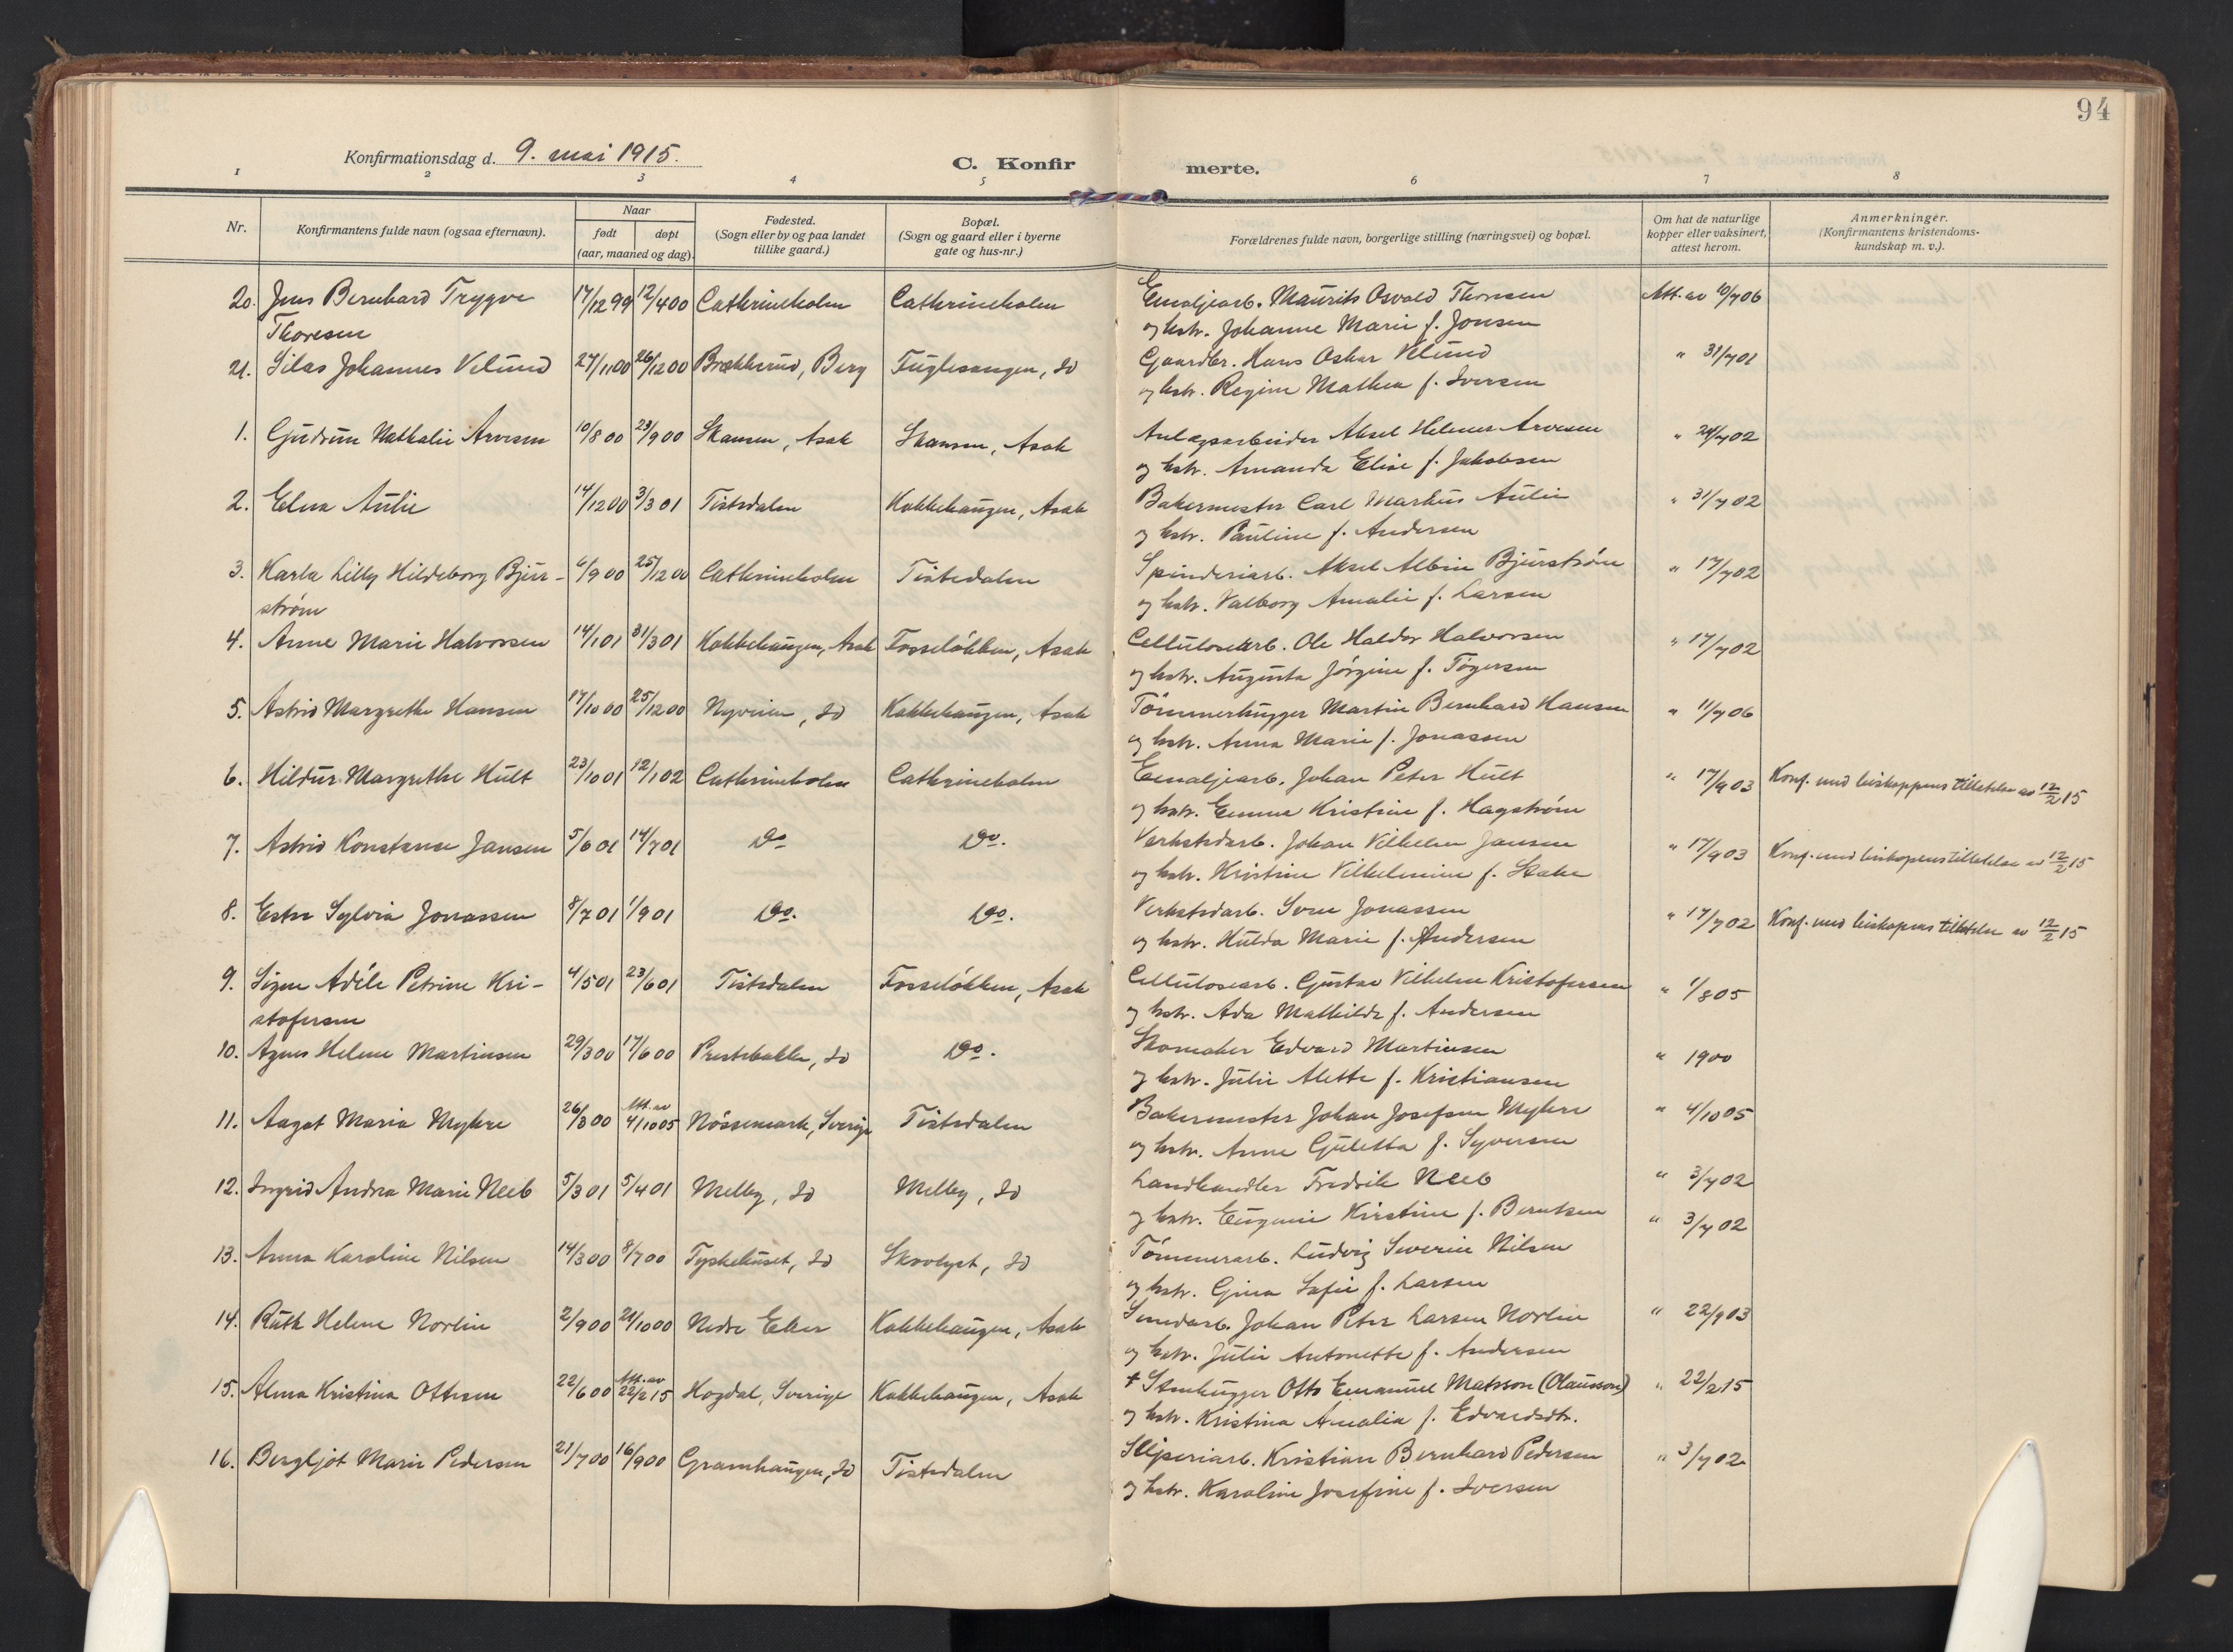 94
Konfirmationsdag d. 9. mai 1915.
C. Konfir merte.
1 2 3 4 5 6 7 8
Nr.
Konfirmantens fulde navn (ogsaa efternavn).
Naar
født døpt
(aar, maaned og dag).
Fødested.
(Sogn eller by og paa landet
tillike gaard.)
Bopæl.
(Sogn og gaard eller i byerne
gate og hus-nr.)
Forældrenes fulde navn, borgerlige stilling (næringsvei) og bopæl.
Om hat de naturlige
kopper eller vaksinert,
attest herom.
Anmerkninger.
(Konfirmantens kristendoms-
kundskap m. v.).
20. Jens Bernhard Trygve 17/12 99 12/4 00 Cathrineholm Cathrineholm Emaljearb. Maurits Osvald Thoresen Att. av 10/7 06
Thoresen og hstr. Johanne Marie f. Jonsen
21. Silas Johannes Velund 27/11 00 26/12 00 Brækkerud, Berg Fuglesangen, Id Gaardbr. Hans Oskar Velund " 31/7 01
og hstr. Regine Mathea f. Iversen
1. Gudrun Nathalie Arvesen 10/8 00 23/9 00 Skansen, Asak Skansen, Asak Anlægsarbeider Aksel Helmer Arvesen " 24/7 02
og hstr. Amanda Elise f. Jakobsen
2. Elna Aulie 14/12 00 3/3 01 Tistedalen Kokkehaugen, Asak Bakermester Carl Markus Aulie " 31/7 02
og hstr. Pauline f. Andersen
3. Karla Lilly Hildeborg Bjur- 6/9 00 25/12 00 Cathrineholm Tistedalen Spinderiarb. Aksel Albin Bjurstrøm " 17/7 02
strøm og hstr. Valborg Amalie f. Larsen
4. Anne Marie Halvorsen 14/1 01 31/3 01 Kokkehaugen, Asak Fosseløkken, Asak Cellulosearb. Ole Haldor Halvorsen " 17/7 02
og hstr. Augusta Jørgine f. Tøgersen
5. Astrid Margrethe Hansen 17/10 00 25/12 00 Nyveien, Id Kokkehaugen, Asak Tømmerhugger Martin Bernhard Hansen " 11/7 06
og hstr. Anna Marie f. Jonassen
6. Hildur Margrethe Hult 23/10 01 12/1 02 Cathrineholm Cathrineholm Emaljearb. Johan Peter Hult " 17/9 03 Konf. med biskoppens tilladelse av 12/2 15
og hstr. Emma Kristine f. Hagstrøm
7. Astrid Konstanse Jansen 5/6 01 14/7 01 Do Do. Verkstedarb. Johan Vilhelm Jansen " 17/9 03 Konf. med biskopens tilladelse av 12/2 15
og hstr. Kristine Vilhelmine f. Stake
8. Ester Sylvia Jonassen 8/7 01 1/9 01 Do. Do. Verkstedarb. Sven Jonassen " 17/7 02 Konf. med biskopens tilladelse av 12/2 15
og hstr. Hulda Marie f. Andersen
9. Signe Adéle Petrine Kri- 4/5 01 23/6 01 Tistedalen Fosseløkken, Asak Cellulosearb. Gustav Vilhelm Kristofersen " 1/8 05
stofersen og hstr. Ada Mathilde f. Andersen
10. Agnes Helene Martinsen 29/3 00 17/6 00 Prestebakke, Id Do. Skomaker Edvard Martinsen " 1900
og hstr. Julie Alette f. Kristiansen
11. Aagot Maria Myhre 26/3 00 Att. av 4/10 05 Nössemark, Sverige Tistedalen Bakermester Johan Josefsen Myhre " 4/10 05
og hstr. Anne Guletta f. Syversen
12. Ingrid Andrea Marie Neeb 5/3 01 5/4 01 Melby, Id Melby, Id Landhandler Fredrik Neeb " 3/7 02
og hstr. Eugenie Kirstine f. Berntsen " 3/7 02
13. Anna Karoline Nilsen 14/3 00 8/7 00 Tyskehuset, Id Skovlyst, Id Tømmerarb. Ludvig Severin Nilsen
og hstr. Gina Sofie f. Larsen
14. Ruth Helene Norlin 2/9 00 21/10 00 Nedre Eker Kokkehaugen, Asak Smedarb. Johan Peter Larsen Norlin " 22/9 03
og hstr. Julie Antonette f. Andersen
15. Alma Kristina Ottesen 22/6 00 Att. av 22/2 15 Hogdal, Sverige Kokkehaugen, Asak † Stenhugger Otto Emanuel Matsson (Olausson) " 22/2 15
og hstr. Kristina Amalia f. Edvardsdtr.
16. Bergljot Marie Pedersen 21/7 00 16/9 00 Gramhaugen, Id Tistedalen Sliperiarb. Kristian Bernhard Pedersen " 3/7 02
og hstr. Karoline Josefine f. Iversen